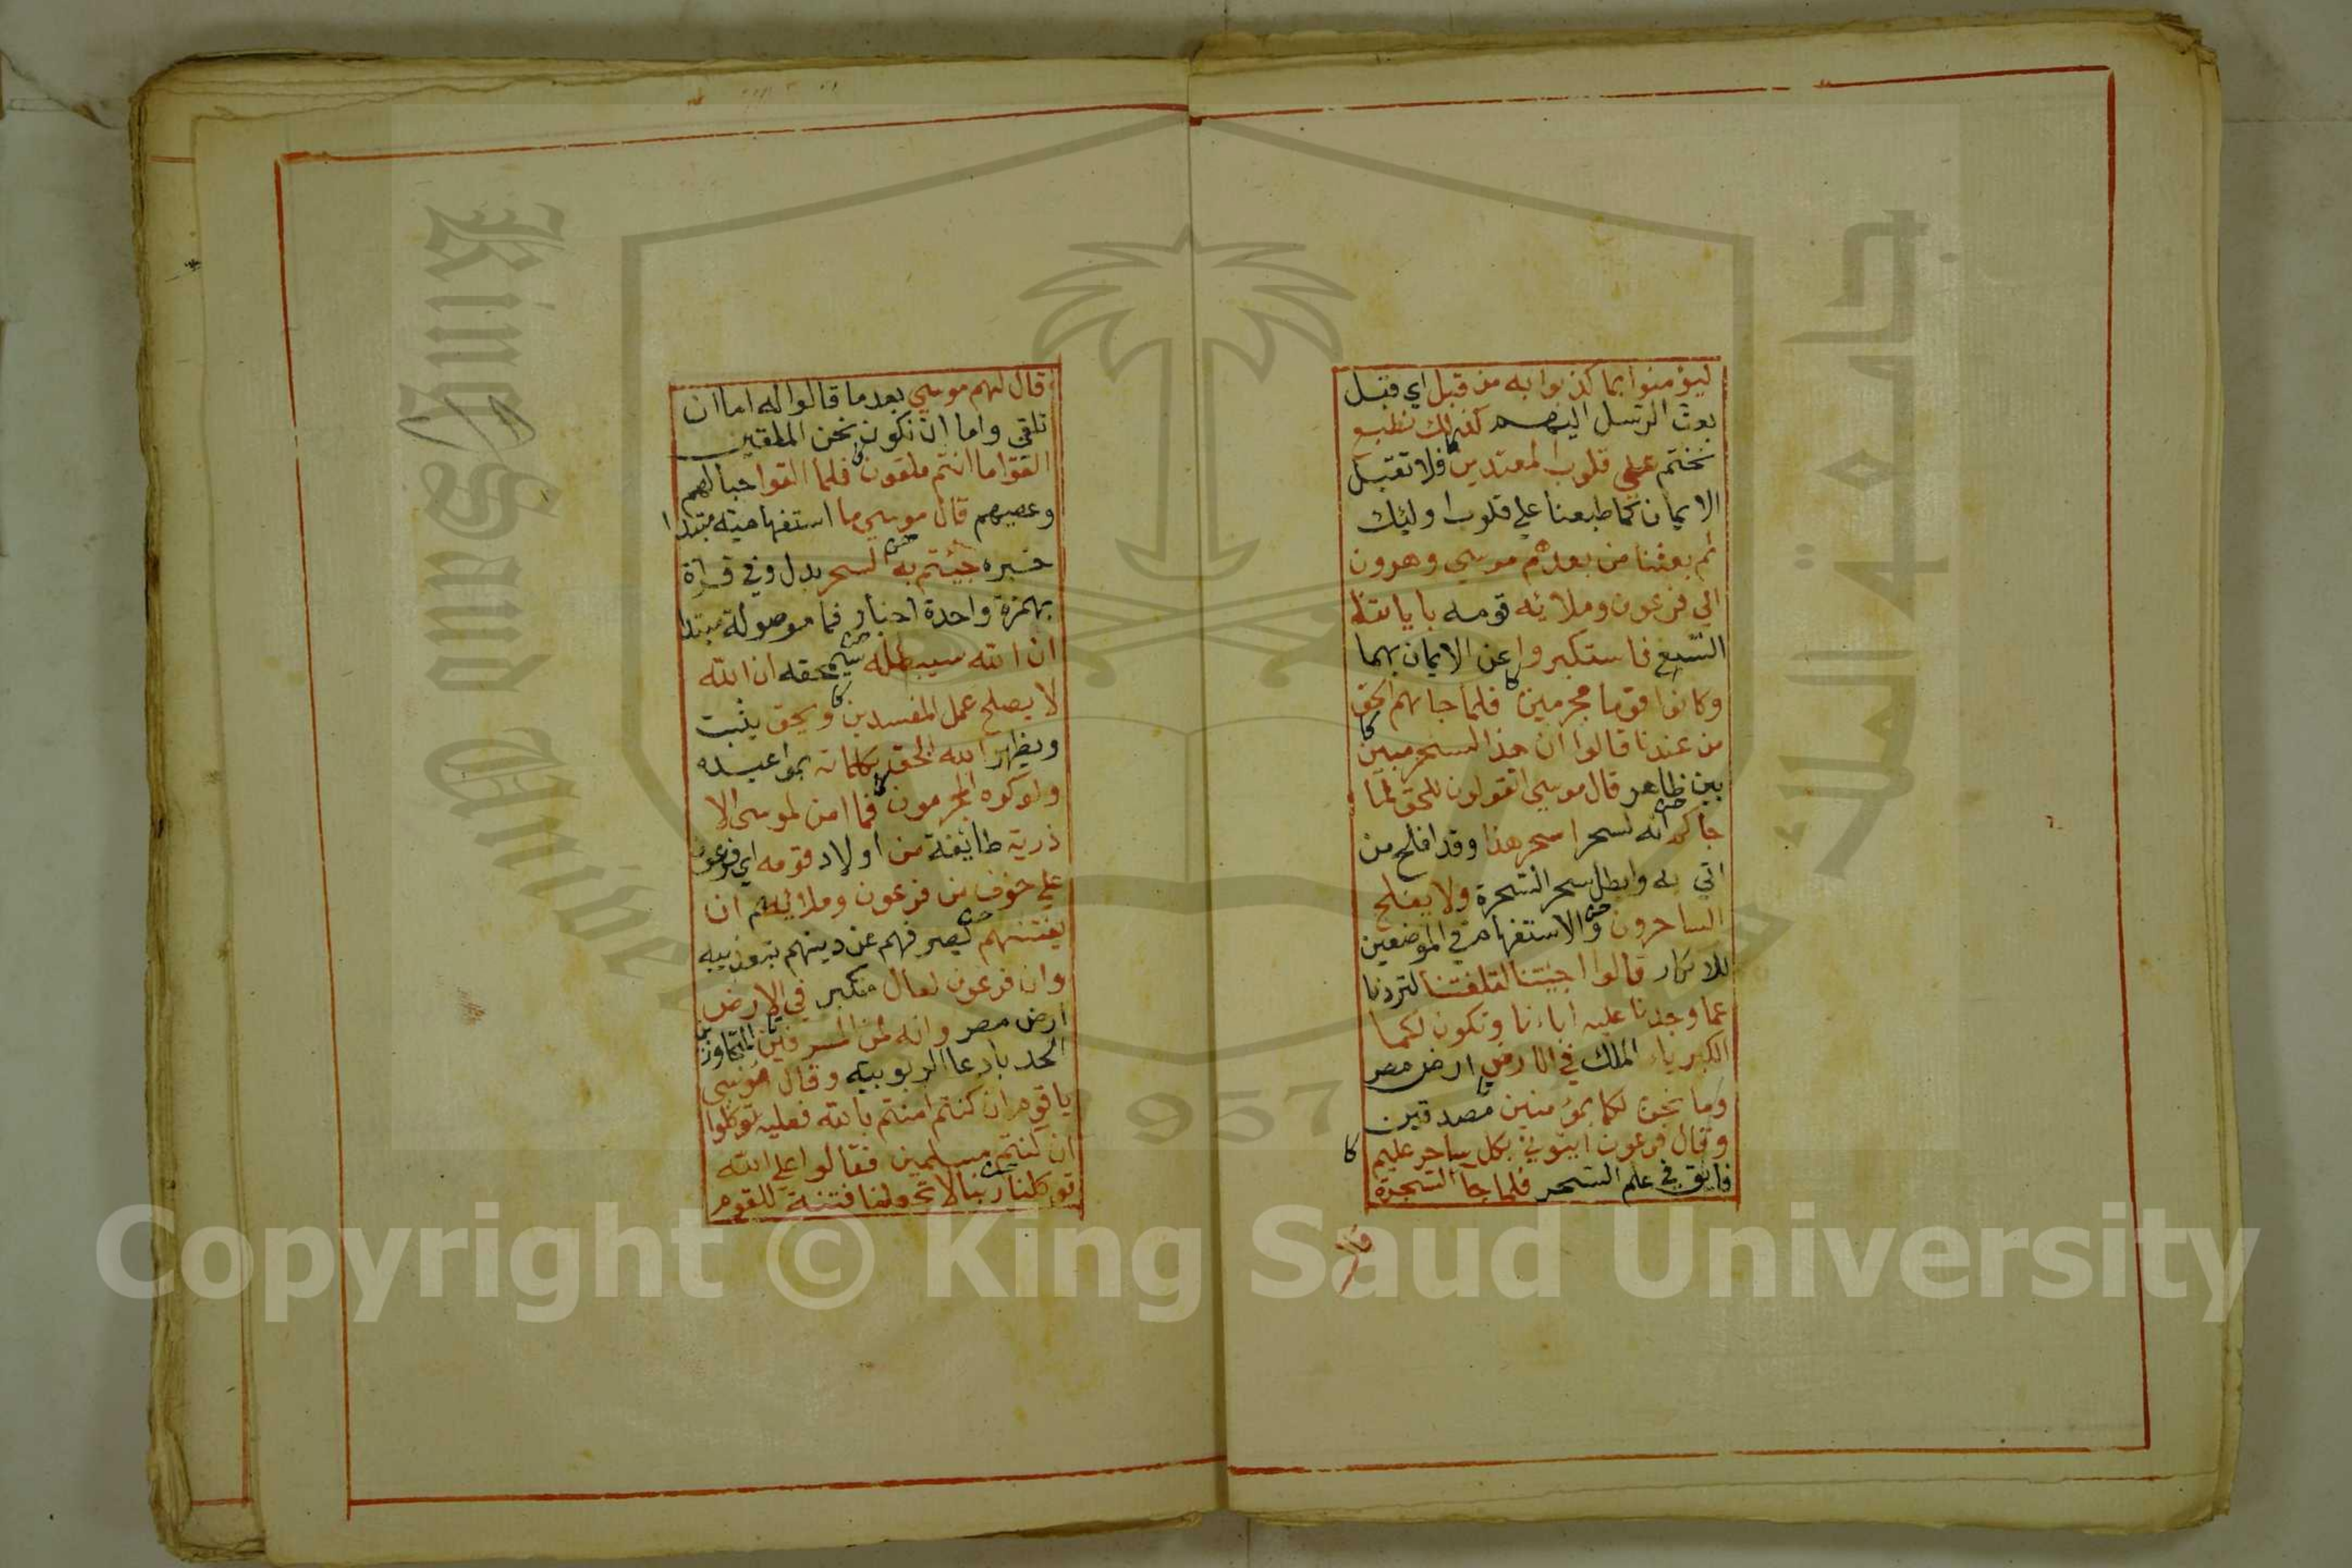 ليؤمنوا بما كذبوا به من قبل اي قبل
بعث الرسل اليهم كذلك نطبع
نختم علي قلوب المعتدين فلا تقبل
الايمان كما طبعنا علي قلوب اوليك
ثم بعثنا من بعدهم موسي وهرون
الي فرعون وملائه قومه باياتنا
التسع فاستكبروا عن الايمان بهما
وكانوا قوما مجرمين فلما جاهم الحق
من عندنا قالوا ان هذا لسحر مبين
بين ظاهر قال موسي اتقولون للحق لما
جاكم انه لسحر اسحر هذا وقد افلح من
اتي به وابطل سحر السحرة ولا يفلح
الساحرون والاستفهام في الموضعين
للانكار قالوا اجيتنا لتلفتنا لتردنا
عما وجدنا عليه اباءنا وتكون لكما
الكبرياء الملك في الارض ارض مصر
وما نحن لكما بمؤمنين مصدقين
وقال فرعون ايتوني بكل ساحر عليم
فايق في علم السحر فلما جآ السحرة
قال
قال لهم موسي بعد ما قالوا له اما ان
تلقي واما ان نكون نحن الملقين
القوا ما انتم ملقون فلما القوا حبالهم
وعصيهم قال موسي ما استفهامية مبتدا
خبره جئتم به السحر بدل وفي قراة
بهمزة واحدة اخبار فما موصولة مبتدا
ان الله سيبطله سيمحقه ان الله
لا يصلح عمل المفسدين ويحق يثبت
ويظهر الله الحق بكلماته بمواعيده
ولو كره المجرمون فما امن لموسي الا
ذرية طايفة من اولاد قومه اي فرعون
علي خوف من فرعون وملائهم ان
يفتنهم يصرفهم عن دينهم بتعذيبه
وان فرعون لعال متكبر في الارض
ارض مصر وانه لمن المسرفين المتجاوزين
الحد بادعا الربوبية وقال موسي
يا قوم ان كنتم امنتم بالله فعليه توكلوا
ان كنتم مسلمين فقالوا علي الله
توكلنا ربنا لا تجعلنا فتنة للقوم
جامعة الملك سعود
King Saud University
1957
Copyright © King Saud University